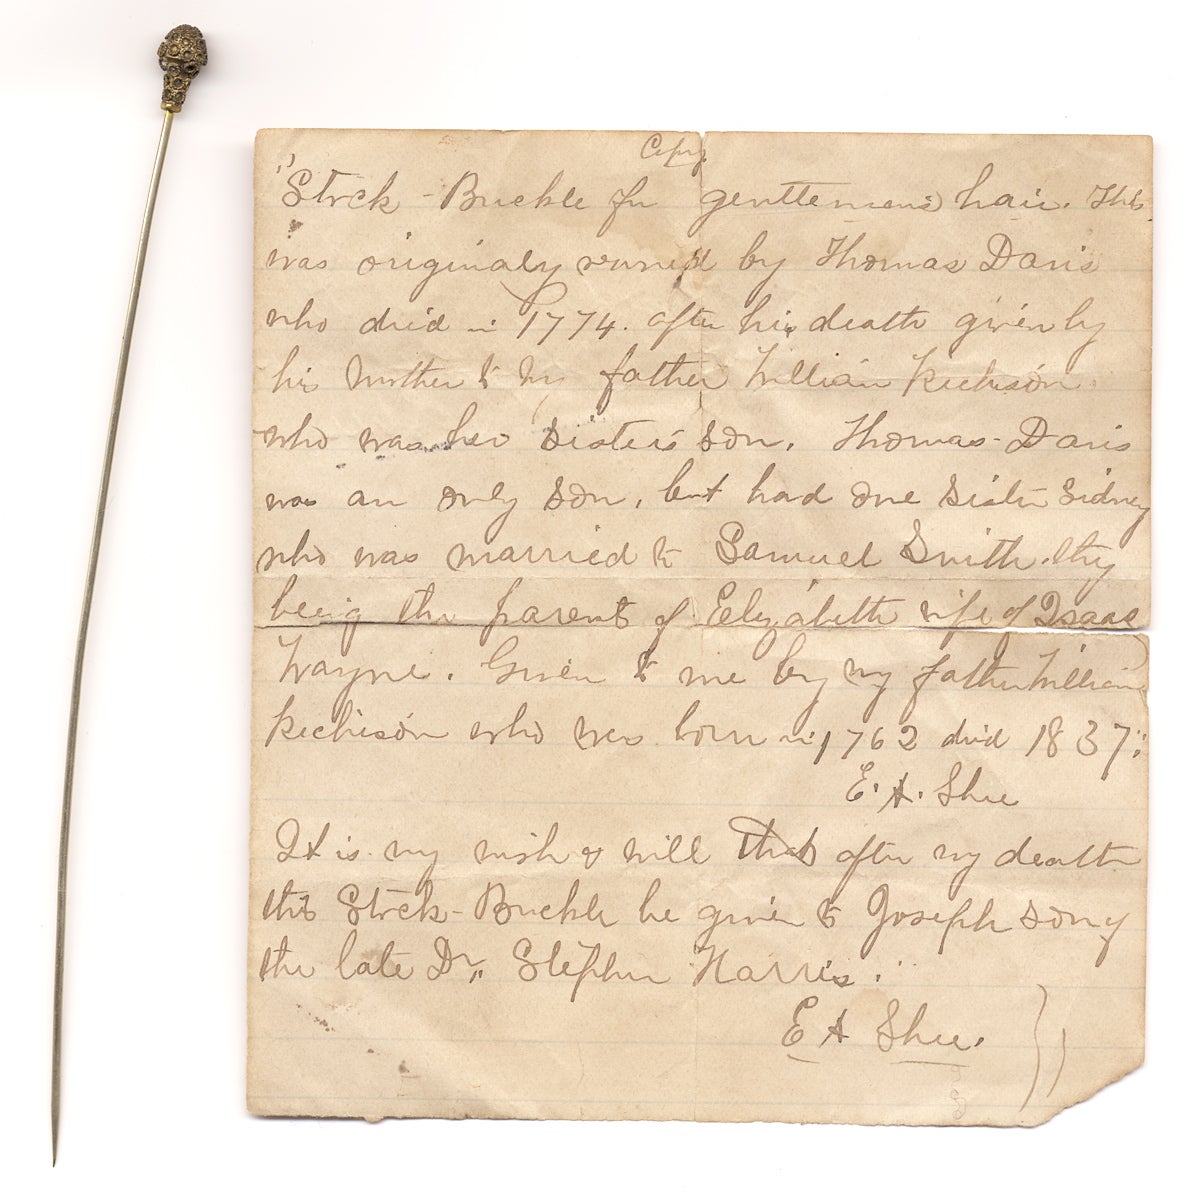 Copy
"Stock-Buckle for gentlemens hair. This
was originaly owned by Thomas Davis
who died in 1774. after his death given by
his mother to my father William Richison
who was her sisters son. Thomas Davis
was an only son, but had one sister Sidney
who was married to Samuel Smith. they
being the parents of Elizabeth wife of Isaac
Wayne. Given to me by my father William
Richison who was born in 1762 died 1837;
E. A. Shee
It is my wish & will that after my death
this Stock-Buckle be given to Joseph son of
the late Dr. Stephen Harris."
E A Shee.